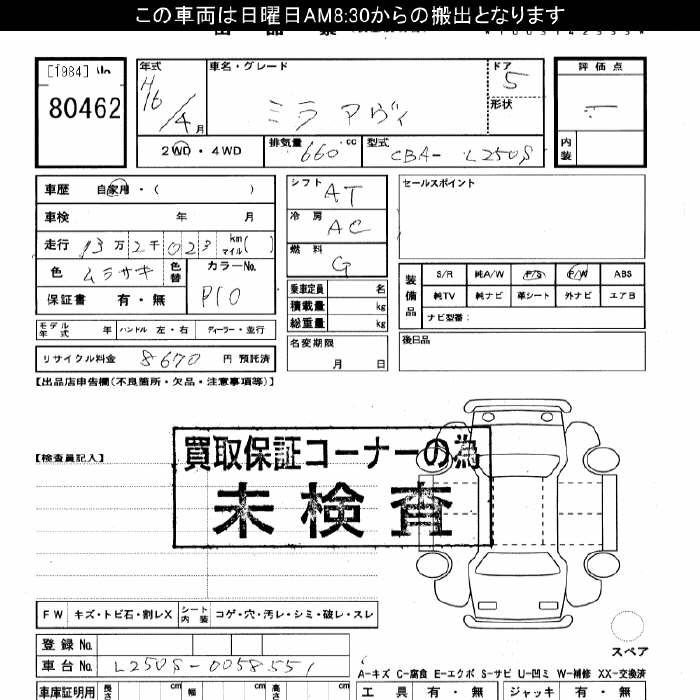 この車両は日曜日AM8:30からの搬出となります
[1984]
80462
年式
H16/4月
車名・グレード
ミラ アヴィ
ドア
5
形状
評価点
内装
2WD・4WD
排気量
660 cc
型式
CBA-L250S
車歴 自家用・( )
車検 年 月
走行 13万2千023 km マイル( )
色 ムラサキ 色替
カラーNo.
P10
保証書 有・無
シフト AT
冷房 AC
燃料 G
乗車定員 名
積載量 kg
総重量 kg
名変期限
月 日
セールスポイント
装備品
S/R 純A/W P/S P/W ABS
純TV 純ナビ 革シート 外ナビ エアB
ナビ型番:
後日品
モデル年式 年 ハンドル 左・右 ディーラー・並行
リサイクル料金 8670 円 預託済
【出品店申告欄(不良箇所・欠品・注意事項等)】
【検査員記入】
買取保証コーナーの為
未検査
FW キズ・トビ石・割レX シート内装 コゲ・穴・汚レ・シミ・破レ・スレ
登録No.
車台No. L250S-0058551
スペア
A-キズ C-腐食 E-エクボ S-サビ U-凹ミ W-補修 XX-交換済
車庫証明用 長さ cm 幅 cm 高さ cm
工具 有・無 ジャッキ 有・無